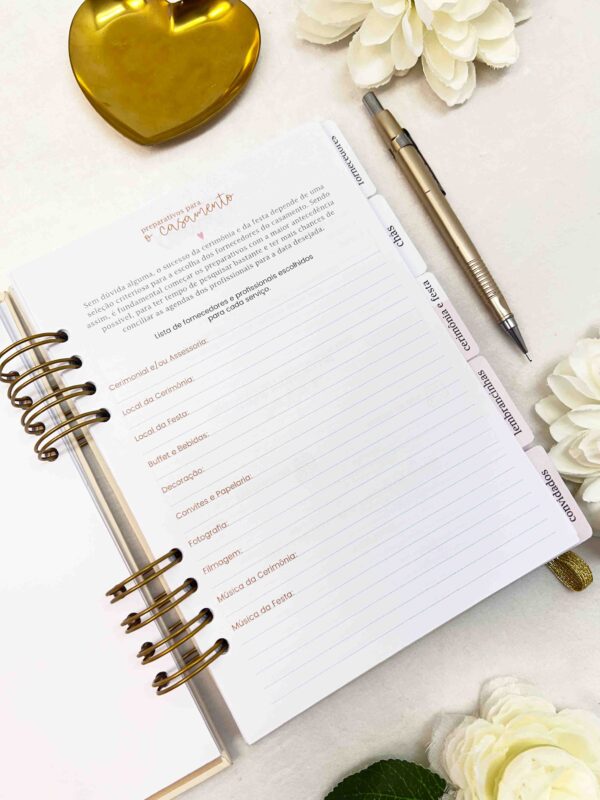 preparativos para
o casamento
Sem dúvida alguma, o sucesso da cerimônia e da festa depende de uma
seleção criteriosa para a escolha dos fornecedores do casamento. Sendo
assim, é fundamental começar os preparativos com a maior antecedência
possível, para ter tempo de pesquisar bastante e ter mais chances de
conciliar as agendas dos profissionais para a data desejada.
Lista de fornecedores e profissionais escolhidos
para cada serviço
Cerimonial e/ou Assessoria:
Local da Cerimônia:
Local da Festa:
Buffet e Bebidas:
Decoração:
Convites e Papelaria:
Fotografia:
Filmagem:
Música da Cerimônia:
Música da Festa:
fornecedores
chás
cerimônia e festa
lembrancinhas
convidados